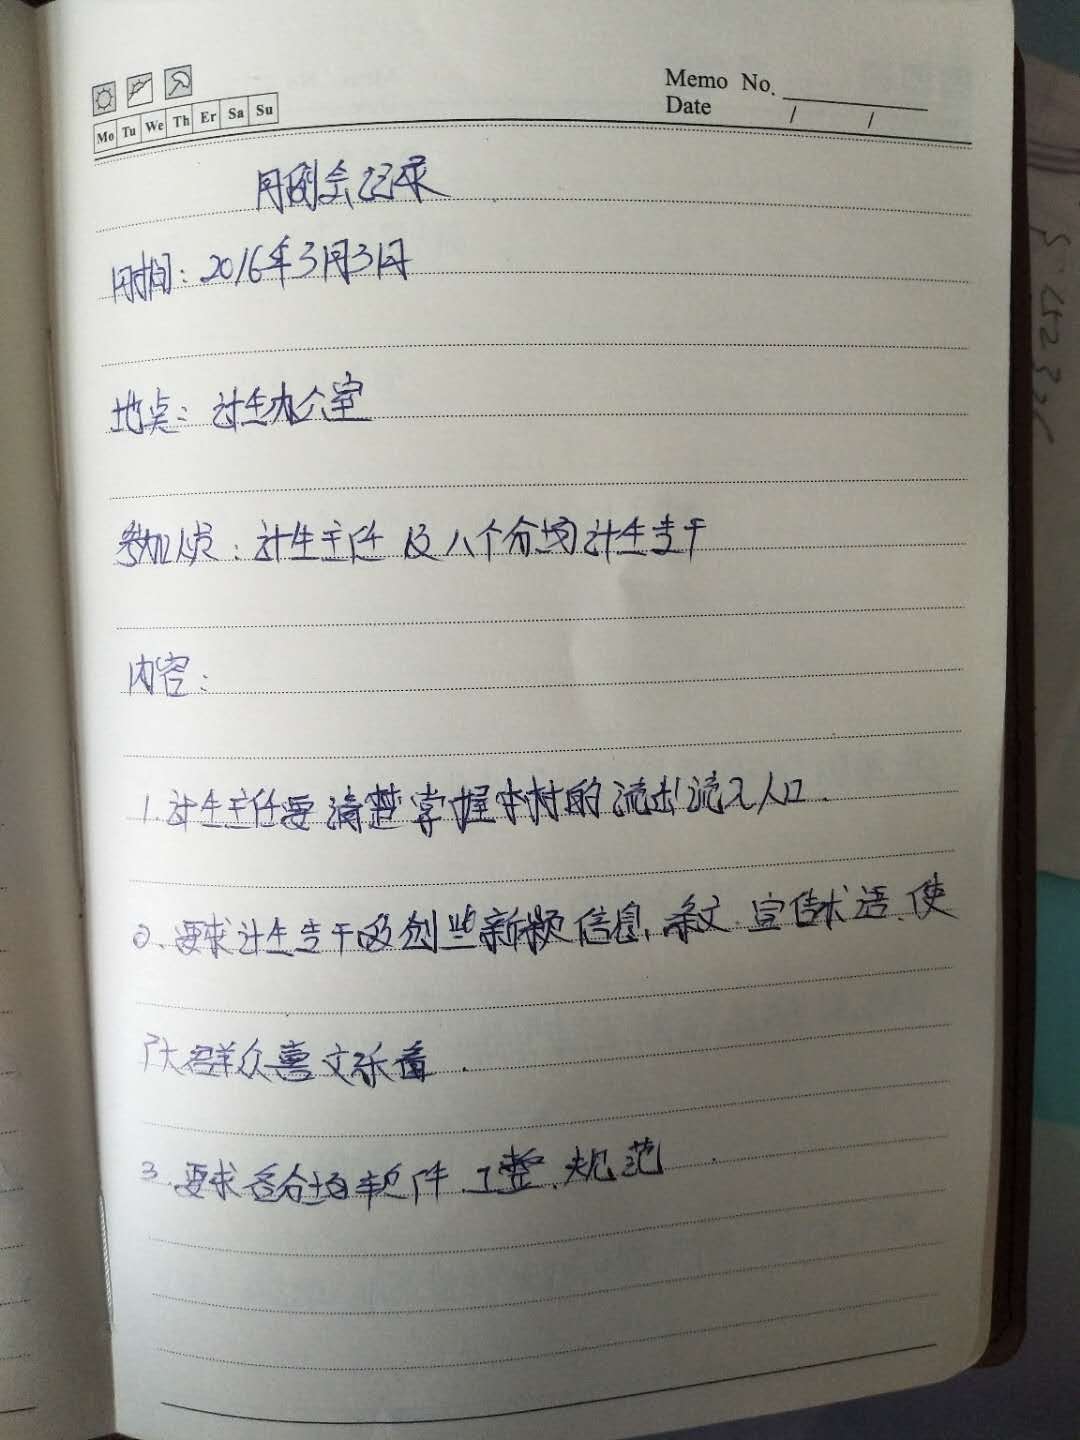 Memo No.
Date / /
Mo Tu We Th Er Sa Su
月例会记录
时间：2016年3月3日
地点：计生办公室
参加人员：计生主任及八个分场计生专干
内容：
1.计生主任要清楚掌握本村的流出流入人口.
2、要求计生专干要创些新颖信息、条文、宣传术语、使
广大群众喜文乐看.
3、要求各分场软件、工整、规范